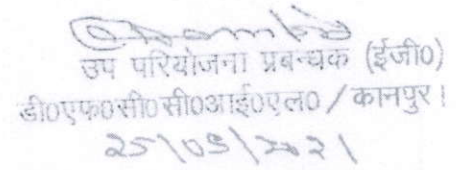 उप परियोजना प्रबन्धक (ईजी०)
डी०एफ०सी०सी०आई०एल० / कानपुर।
25/05/2021